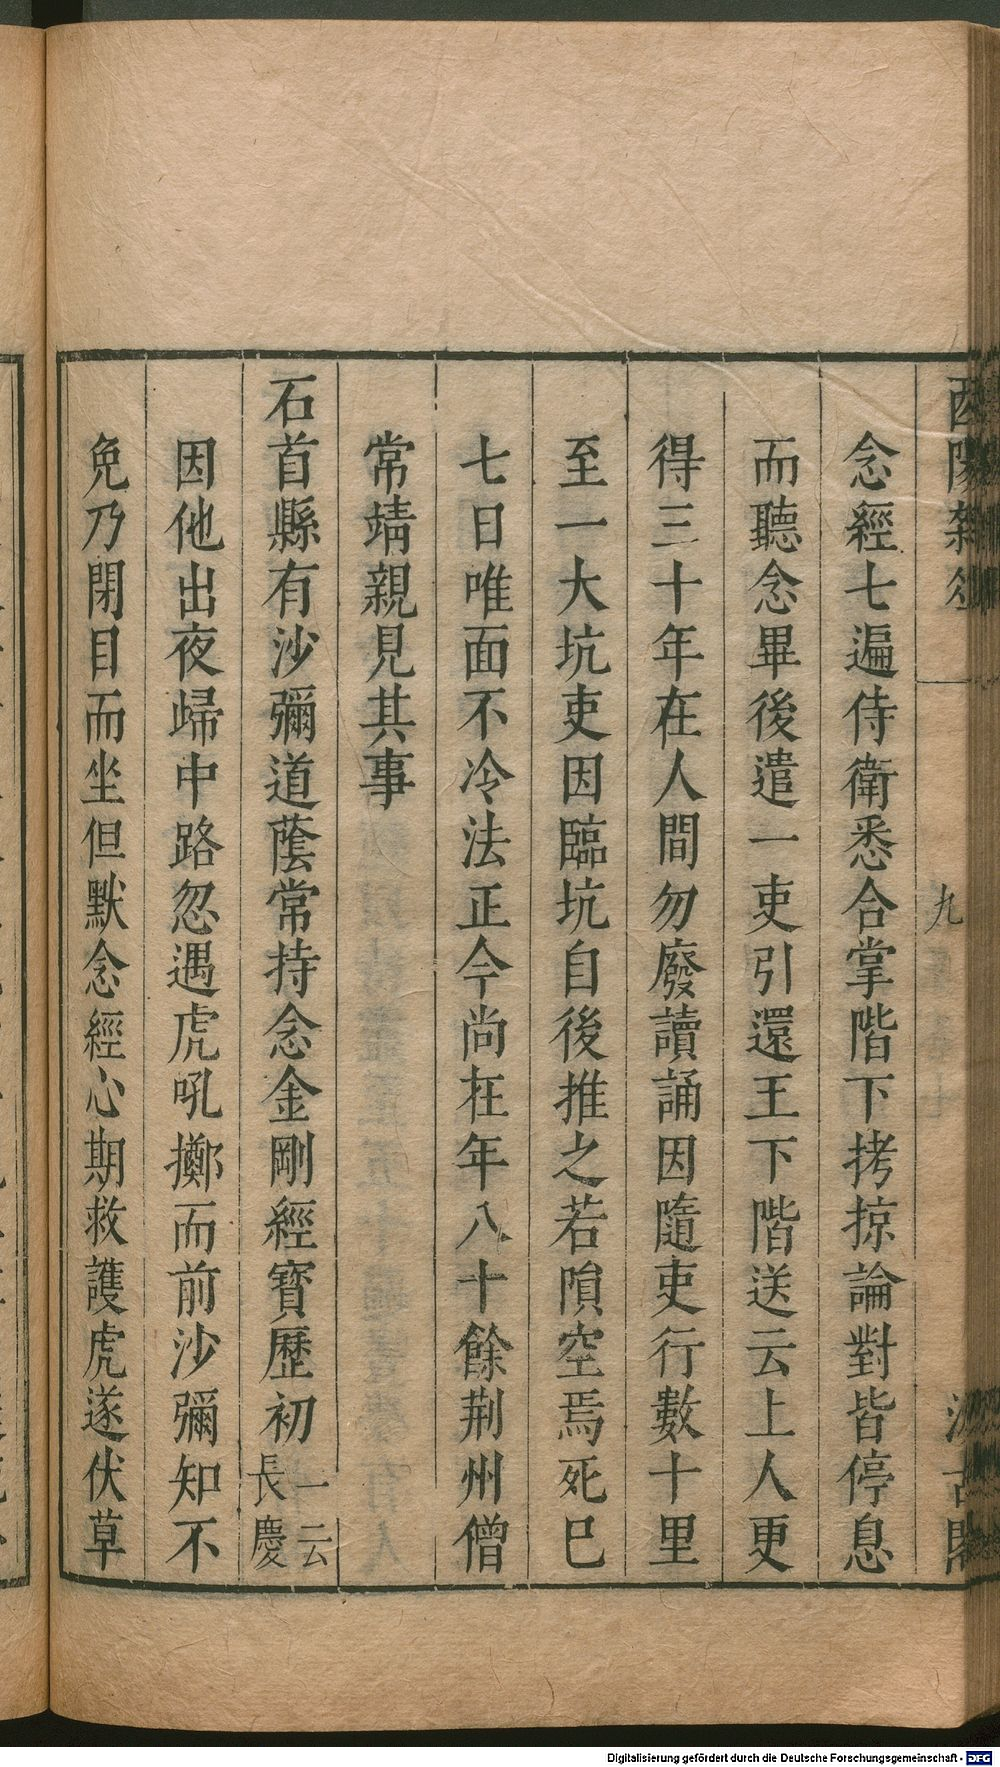 念經七遍侍衛悉合掌階下拷掠論對皆停息
而聽念畢後遣一吏引還王下階送云上人更
得三十年在人間勿廢讀誦因隨吏行數十里
至一大坑吏因臨坑自後推之若隕空焉死巳
七日唯面不冷法正今尚在年八十餘荆州僧
常靖親見其事
石首縣有沙彌道蔭常持念金剛經寶歷初一云長慶
因他出夜歸中路忽遇虎吼擲而前沙彌知不
免乃閉目而坐但默念經心期救護虎遂伏草
九
Digitalisierung gefördert durch die Deutsche Forschungsgemeinschaft - DFG